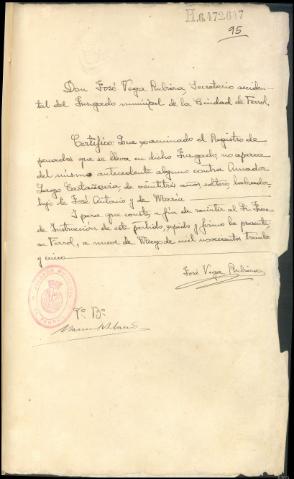 H.6472647
95
Don José Vega Rubiera Secretario acciden-
tal del Juzgado municipal de la Ciudad de Ferrol,
Certifico: Que examinado el Registro de
penados que se lleva en dicho Juzgado, no aparece
del mismo antecedente alguno contra Amador
Lago Castañeira, de veintitrés años, soltero, labrador,
hijo de José Antonio y de Maria
Y para que conste, a fin de remitir al Sr. Juez
de Instrucción de este partido, expido y firmo la presente
en Ferrol, a nueve de Mayo de mil novecientos treinta
y cinco
José Vega Rubiera
Vº Bº